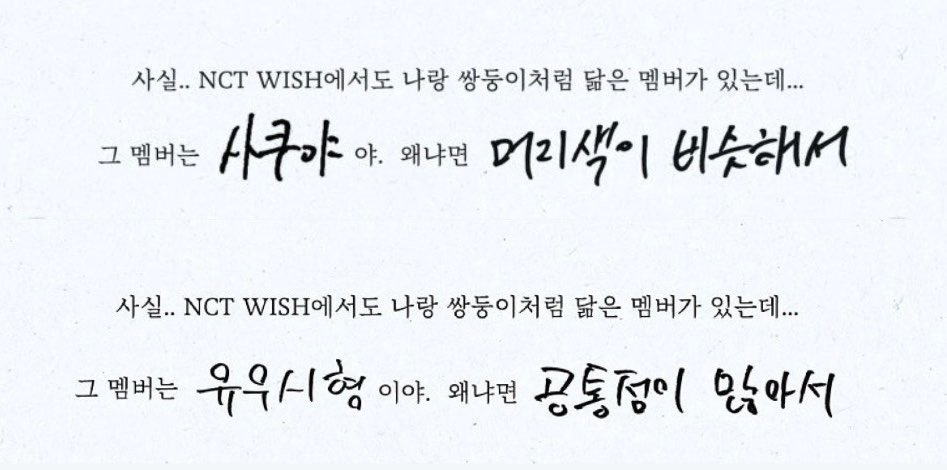 사실.. NCT WISH에서도 나랑 쌍둥이처럼 닮은 멤버가 있는데...
그 멤버는 사쿠야 야. 왜냐면 머리색이 비슷해서
사실.. NCT WISH에서도 나랑 쌍둥이처럼 닮은 멤버가 있는데...
그 멤버는 유우시형 이야. 왜냐면 공통점이 많아서